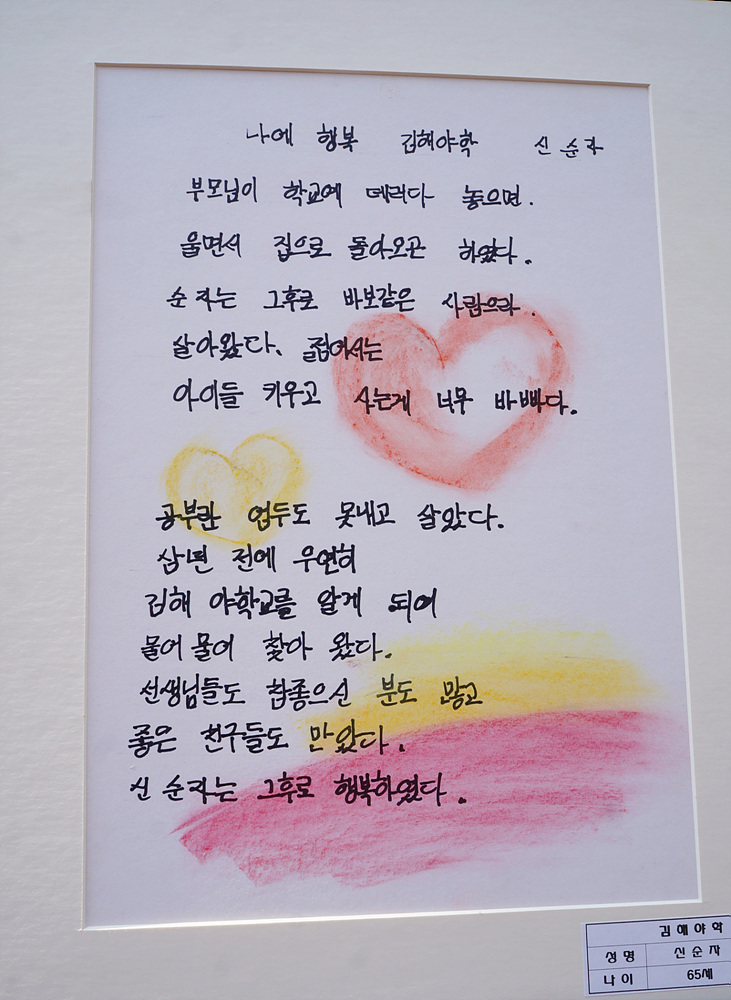 나에 행복 김해야학 신 순자
부모님이 학교에 데리다 놓으면.
울면서 집으로 돌아오곤 하였다.
순자는 그후로 바보같은 사람으라.
살아왔다. 젊어서는
아이들 키우고 사는게 너무 바빠다.
공부란 업두도 못내고 살았다.
삼년 전에 우연히
김해 야학교를 알게 되어
물어물어 찾아 왔다.
선생님들도 참좋으신 분도 많고
좋은 친구들도 만았다.
신 순자는 그후로 행복하였다.
김해야학
성명 신순자
나이 65세